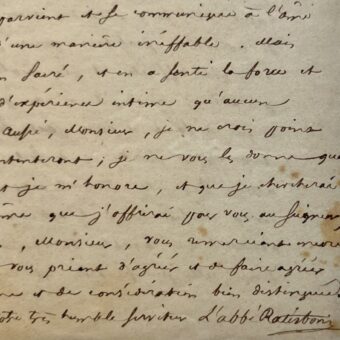 parvient et se communique à l'âme
d'une manière ineffable. Mais
sacré, et en a senti la force et
d'expérience intime qu'aucun
Aussi, Monsieur, je ne crois point
je ne vous les donne que
je m'honore, et que je chercherai
que j'offrirai pour vous au Seigneur
, Monsieur, vous remerciant encore
vous priant d'agréer et de faire agréer
et de considération bien distinguée
votre très humble serviteur L'abbé Ratisbonne